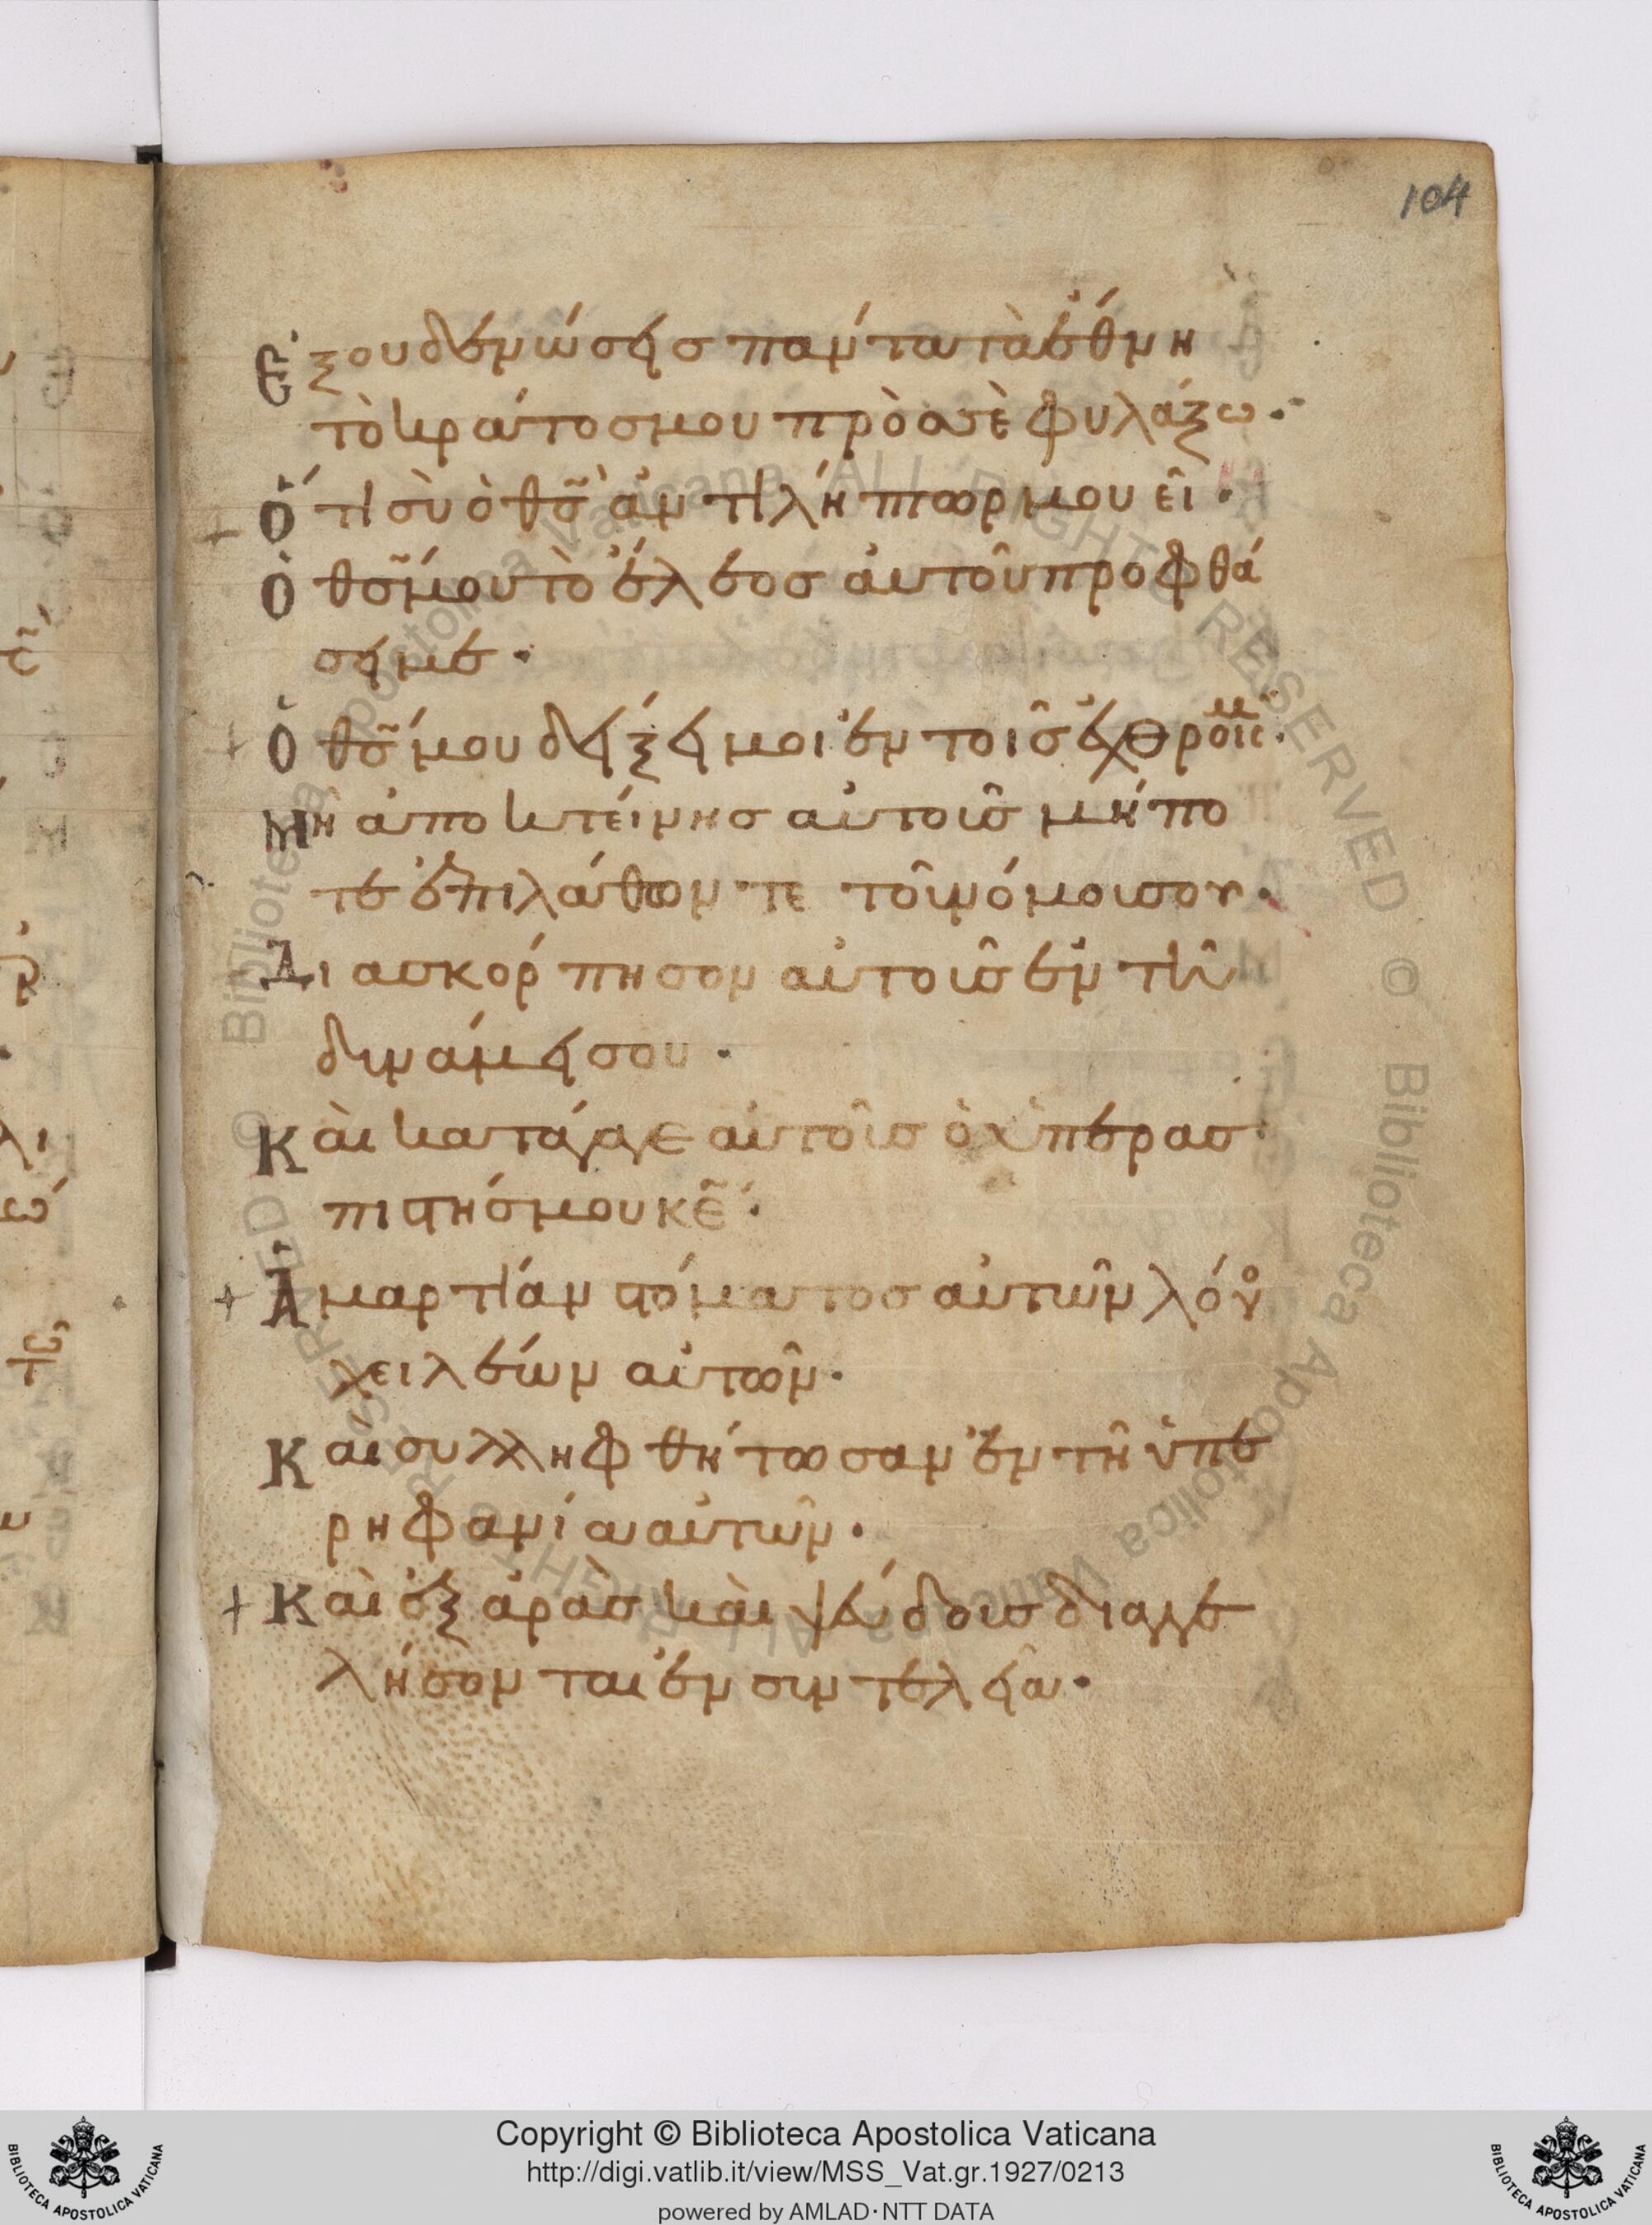 104
Ἐξουδενώσεις πάντα τὰ ἔθνη
τὸ κράτος μου πρὸς σὲ φυλάξω·
+ Ὅτι σὺ ὁ θς̃ ἀντιλήπτωρ μου εἶ·
Ὁ θς̃ μου τὸ ἔλεος αὐτοῦ προφθά
σει με·
+ Ὁ θς̃ μου δείξει μοι ἐν τοῖς ἐχθροῖς μου·
Μὴ ἀποκτείνης αὐτοὺς μήπο
τε ἐπιλάθωνται τοῦ νόμου σου·
Διασκόρπησον αὐτοὺς ἐν τῆ
δυνάμει σου·
Καὶ κατάγαγε αὐτοὺς ὁ ὑπερασ
πιστής μου κε̃·
+ Ἁμαρτίαν στόματος αὐτῶν λόγο
χειλέων αὐτῶν·
Καὶ συλληφθήτωσαν ἐν τῆ ὑπε
ρηφανία αὐτῶν·
+ Καὶ ἐξ ἀρᾶς καὶ ψεύδους διαγγε
λήσονται ἐν συντελεία·
Copyright © Biblioteca Apostolica Vaticana
http://digi.vatlib.it/view/MSS_Vat.gr.1927/0213
powered by AMLAD·NTT DATA
BIBLIOTECA APOSTOLICA VATICANA
BIBLIOTECA APOSTOLICA VATICANA